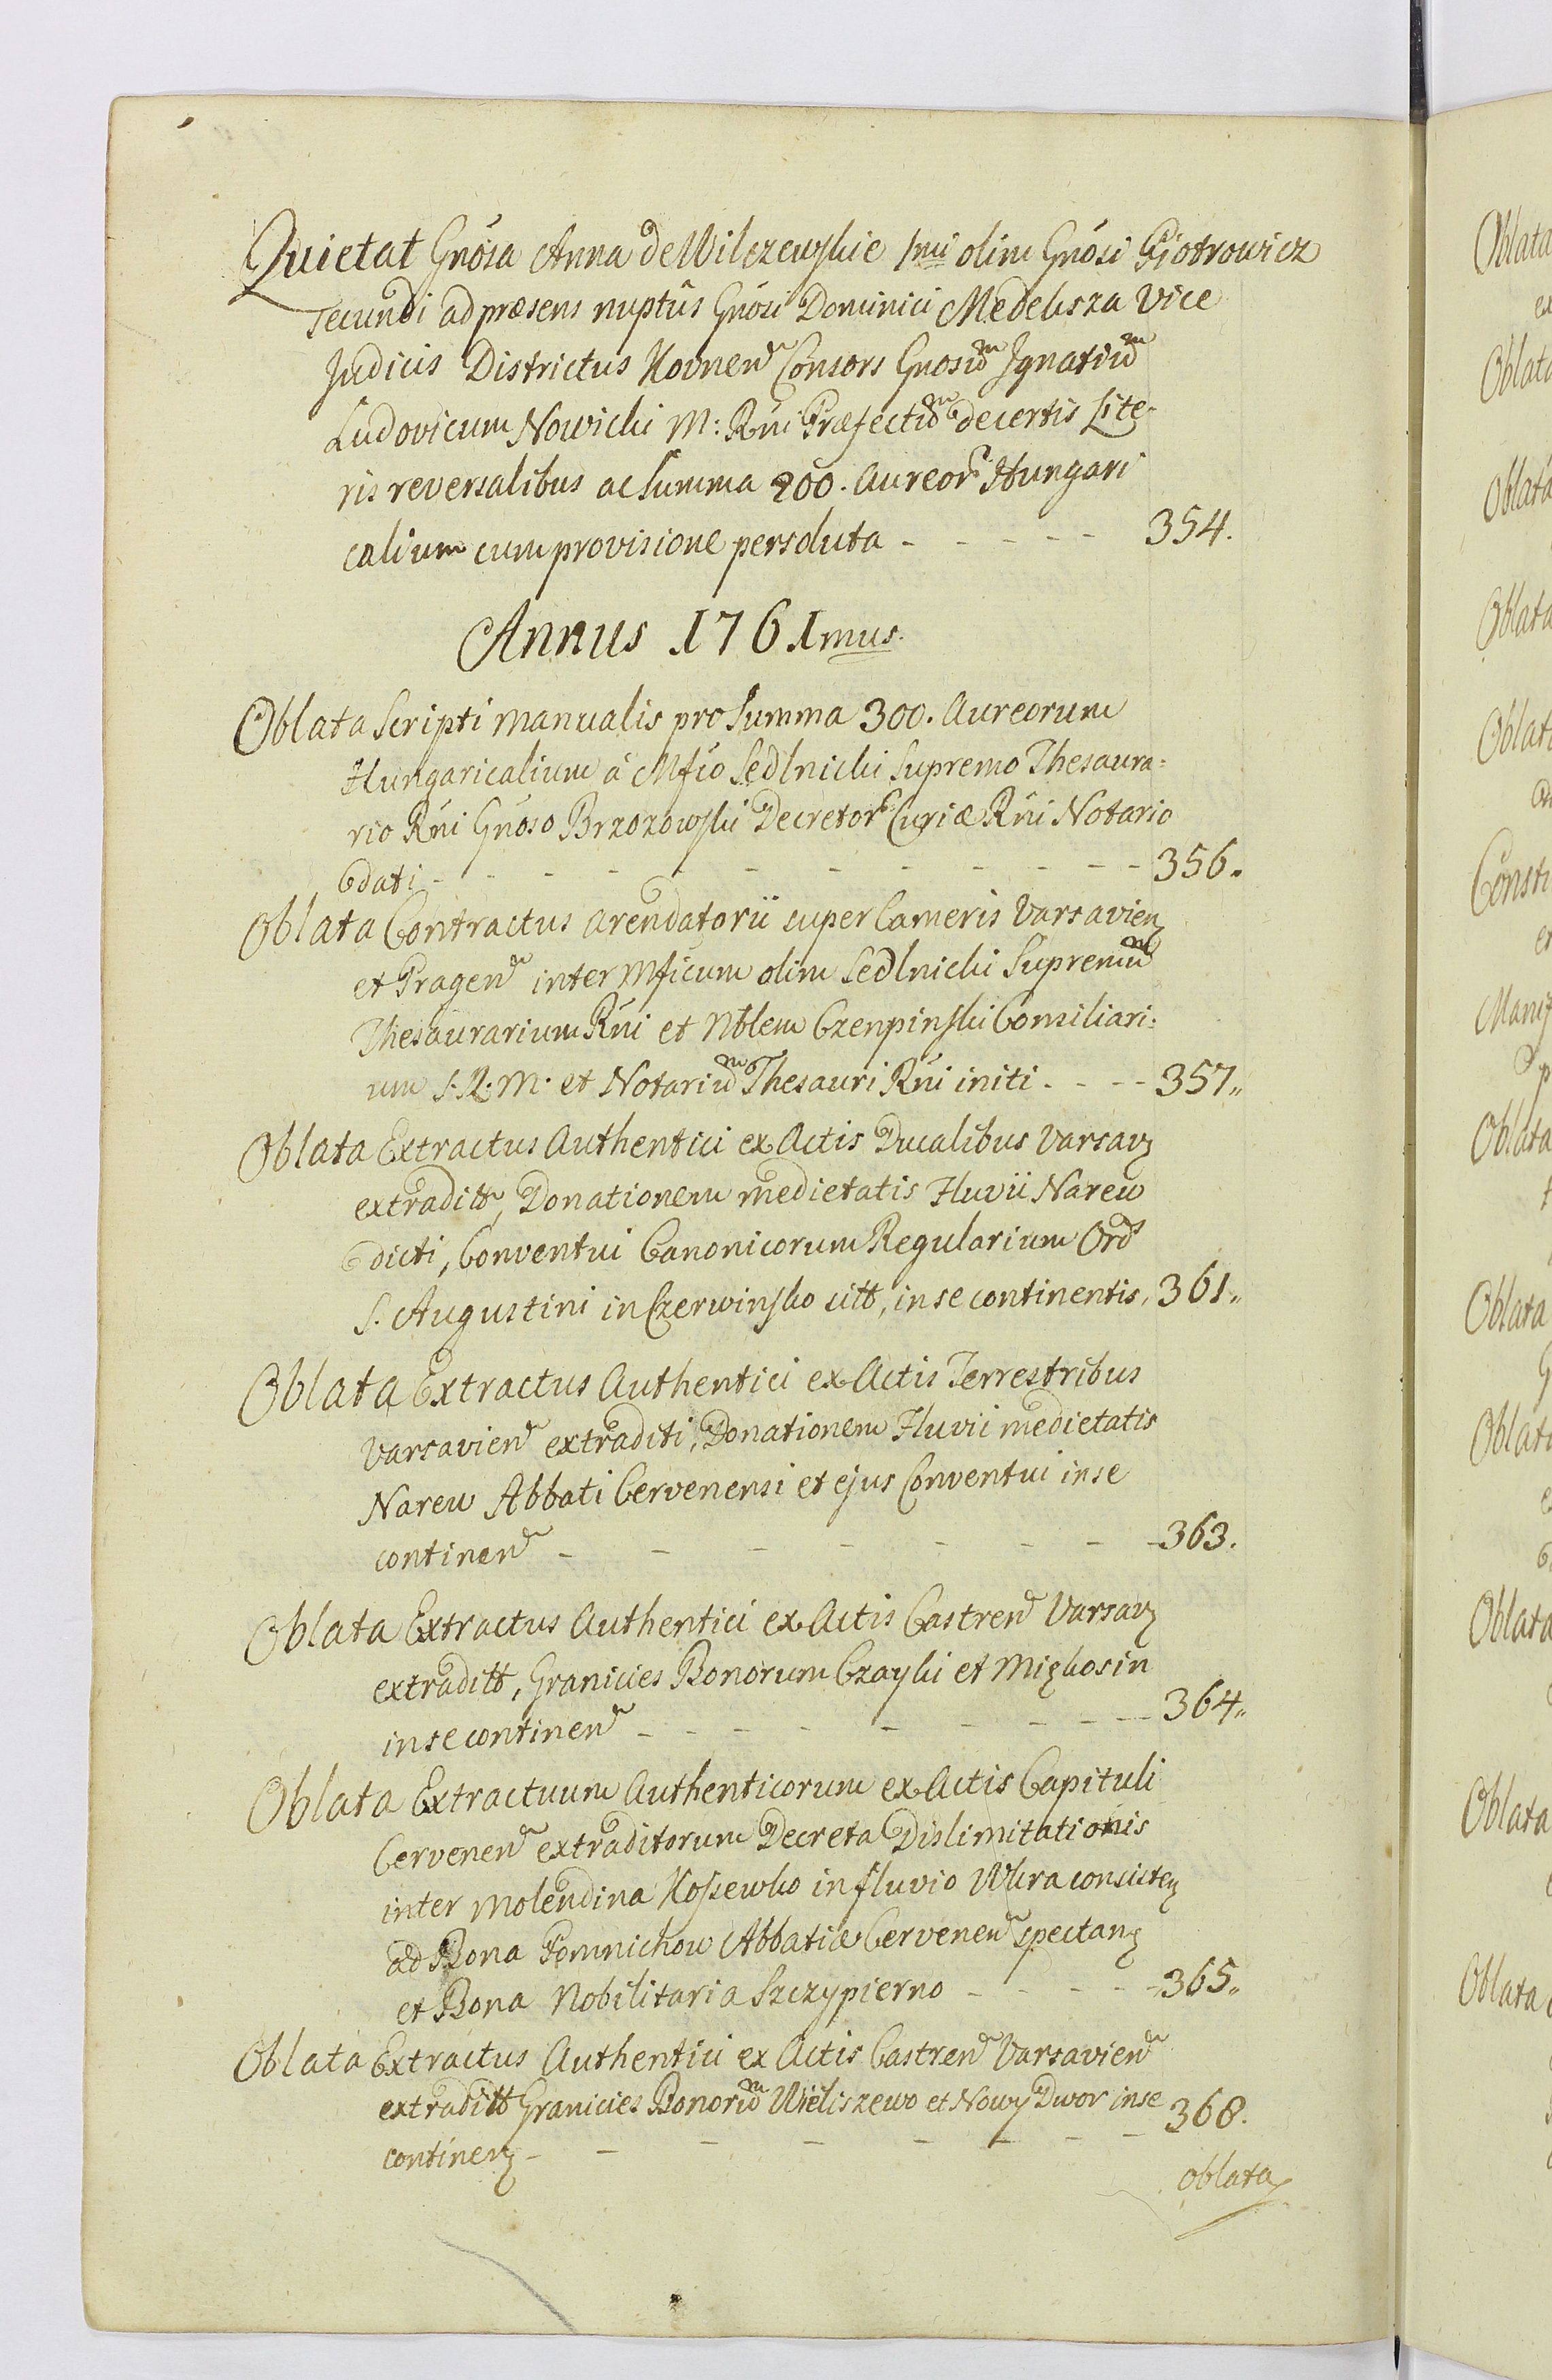 Quietat Gnosa Anna de Wilczewskie 1mi olim Gnosi Piotrowicz
secundi ad præsens nuptûs Gnosi Dominici Medeksza Vice
Judicis Districtus Kovnen Consors Gnosum Ignatium
Ludovicum Nowicki M: Rni Præfectum de certis Lite-
ris reversalibus ac summa 200. Aureor Hungari
calium cum provisione persoluta - - - - - 354.
Annus 1761mus.
Oblata Scripti manualis pro Summa 300. Aureorum
Hungaricalium à Mfico Sedlnicki Supremo Thesaura=
rio Rni Gnoso Brzozowski Decretor Curiæ Rni Notario
dati - - - - - - - - - - 356.
Oblata Contractus arendatorii super Cameris Varsavien
et Pragen inter Mficum olim Sedlnicki Supremum
Thesaurarium Rni et Nblem Czenpinski Consiliari=
um S: R: M: et Notarium Thesauri Rni initi - - - - 357.
Oblata Extractus Authentici ex Actis Ducalibus Varsav
extraditt, Donationem medietatis Fluvii Narew
dicti, Conventui Canonicorum Regularium Ord
S. Augustini in Czerwinsko sitt, in se continentis, 361.
Oblata Extractus Authentici ex Actis Terrestribus
Varsavien extraditi, Donationem Fluvii medietatis
Narew Abbati Cervenensi et ejus Conventui in se
continen - - - - - - - - 363.
Oblata Extractus Authentici ex Actis Castren Varsav
extraditt, Granicies Bonorum Czayki et Miękosin
in se continen - - - - - - - - 364.
Oblata Extractuum Authenticorum ex Actis Capituli
Cervenen extraditorum Decreta Dislimitationis
inter Molendina Kossewko in fluvio Wkra consisten
ad Bona Pomnichow Abbatiæ Cervenen spectan
et Bona Nobilitaria Szczypierno - - - - - 365.
Oblata Extractus Authentici ex Actis Castren Varsavien
extraditt Granicies Bonorum Wieliszewo et Nowy Dwor in se 368.
continen - - - - - - - -
oblata